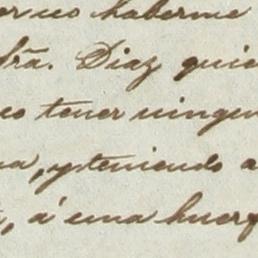 haberme
Sra. Diaz quie
co tener ningu
na, y teniendo a
, á una huerf